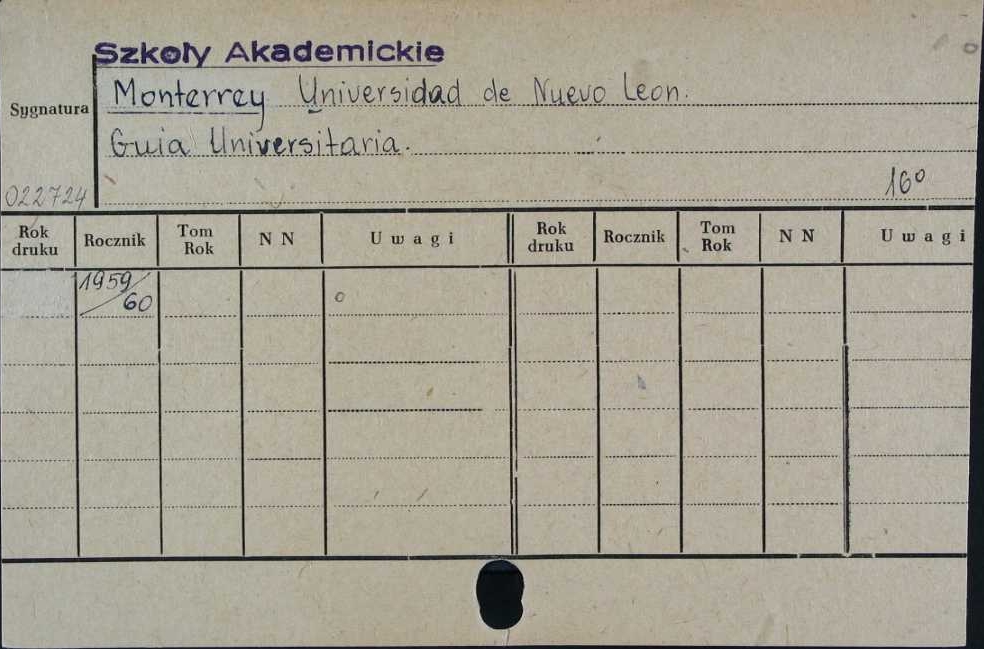 Szkoły Akademickie
Monterrey Universidad de Nuevo Leon.
Sygnatura
Guia Universitaria.
022724
16º
Rok druku Rocznik Tom Rok N N Uwagi Rok druku Rocznik Tom Rok N N Uwagi
1959/60